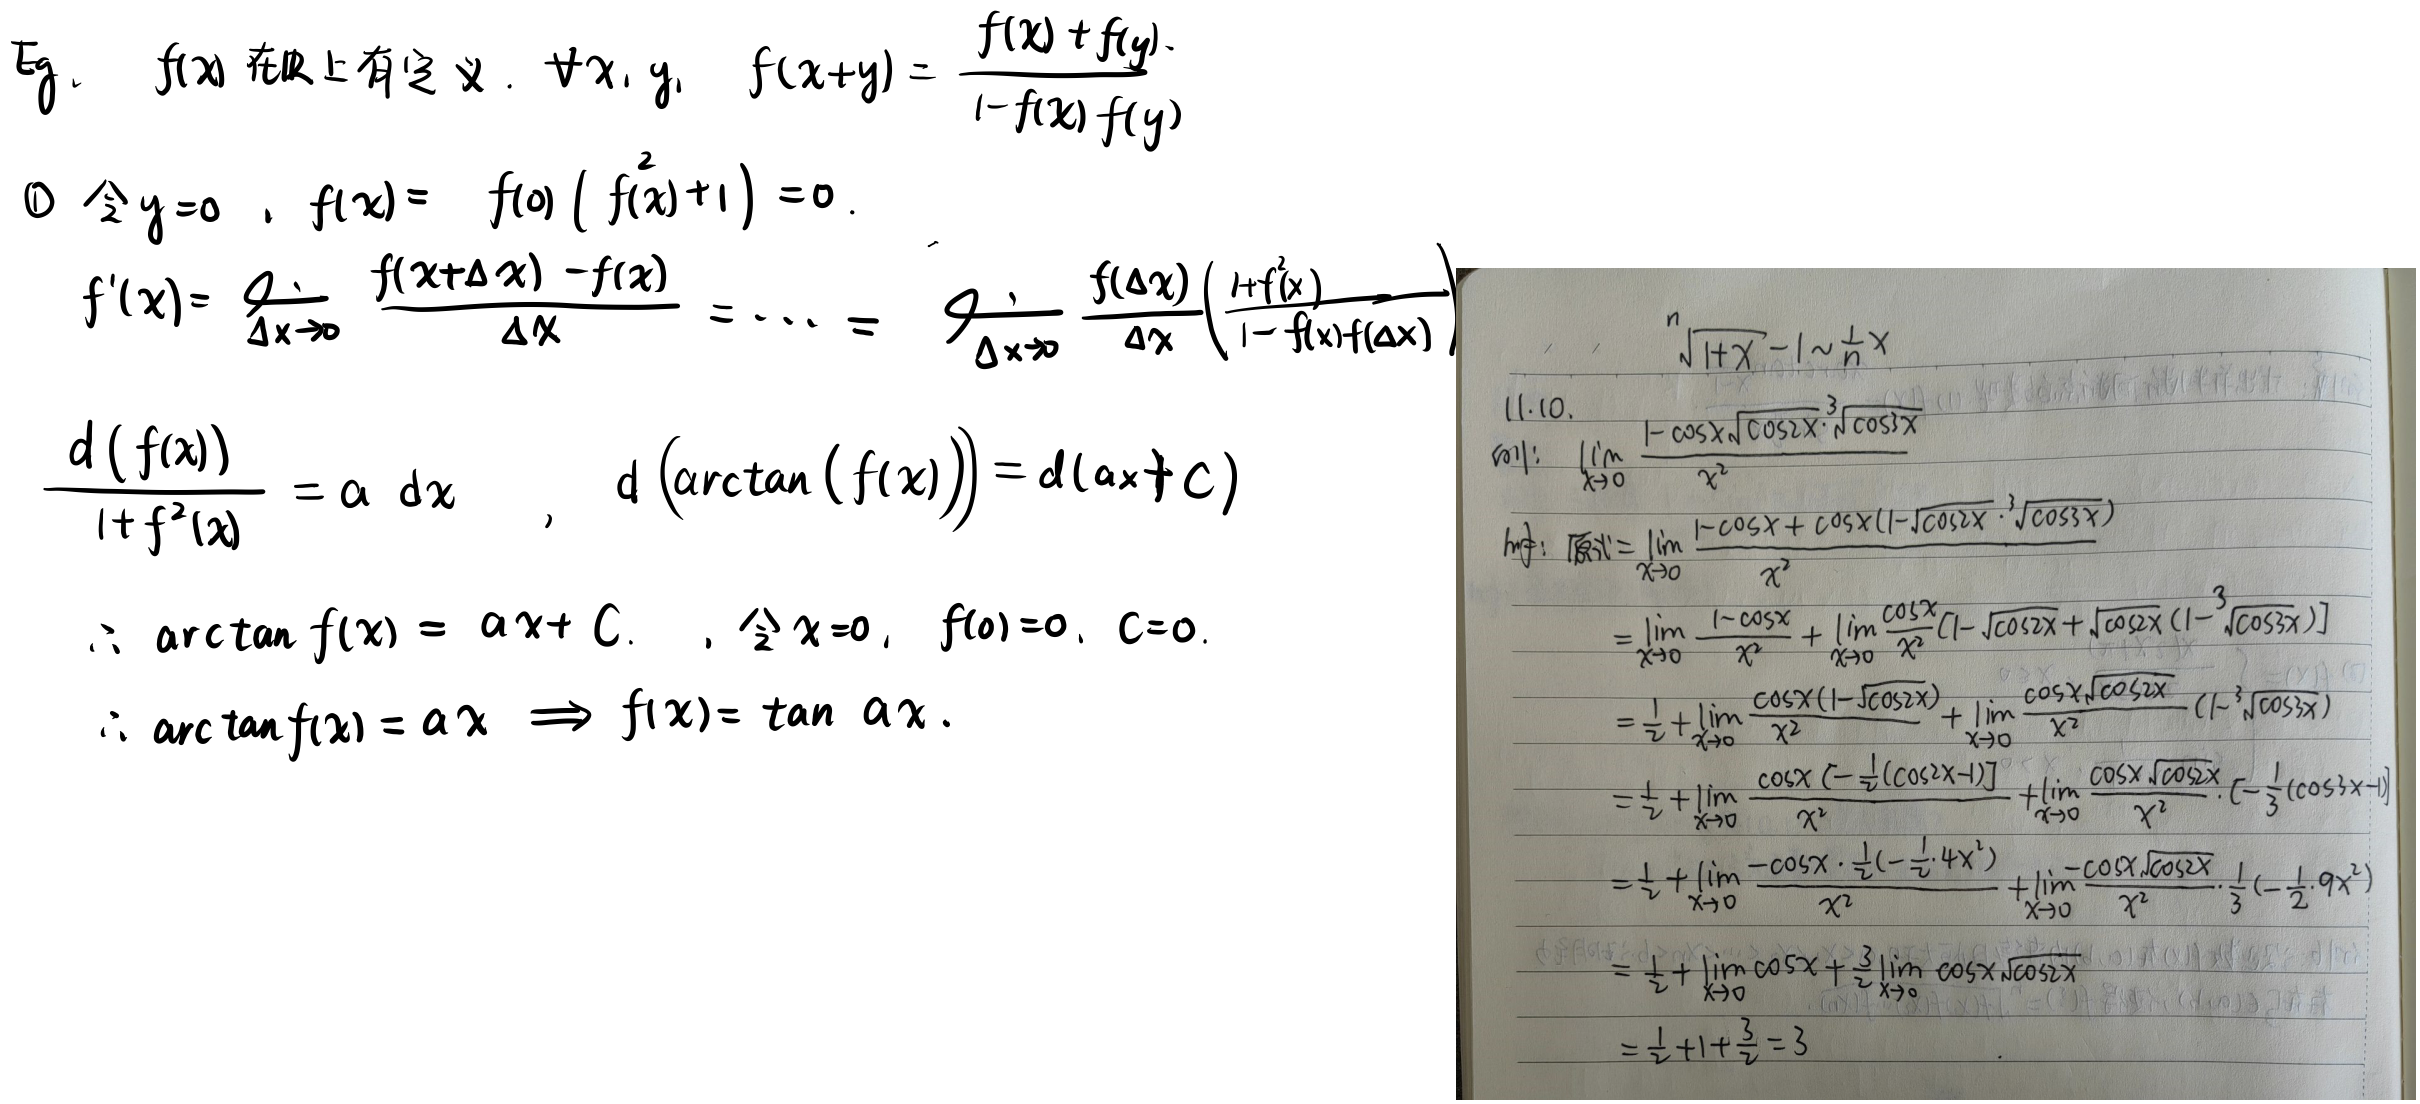 Eg. f(x) 在R上有定义. ∀x, y, f(x+y) = \frac{f(x)+f(y)}{1-f(x)f(y)}.
① 令y=0, f(x)= f(0)(f^2(x)+1)=0.
f'(x)= lim_{Δx→0} \frac{f(x+Δx)-f(x)}{Δx} = ... = lim_{Δx→0} \frac{f(Δx)}{Δx}(\frac{1+f^2(x)}{1-f(x)f(Δx)})
\frac{d(f(x))}{1+f^2(x)} = a dx, d(arctan(f(x))) = d(ax+C)
∴ arctan f(x) = ax+C. , 令x=0, f(0)=0, C=0.
∴ arctan f(x) = ax ⟹ f(x) = tan ax.
\sqrt[n]{1+x}-1~\frac{1}{n}x
11.10.
例1: lim_{x→0} \frac{1-cosx\sqrt{cos2x}·\sqrt[3]{cos3x}}{x^2}
解: 原式= lim_{x→0} \frac{1-cosx+cosx(1-\sqrt{cos2x}·\sqrt[3]{cos3x})}{x^2}
= lim_{x→0} \frac{1-cosx}{x^2} + lim_{x→0} \frac{cosx}{x^2}[1-\sqrt{cos2x}+\sqrt{cos2x}(1-\sqrt[3]{cos3x})]
= \frac{1}{2} + lim_{x→0} \frac{cosx(1-\sqrt{cos2x})}{x^2} + lim_{x→0} \frac{cosx\sqrt{cos2x}}{x^2}(1-\sqrt[3]{cos3x})
= \frac{1}{2} + lim_{x→0} \frac{cosx[-\frac{1}{2}(cos2x-1)]}{x^2} + lim_{x→0} \frac{cosx\sqrt{cos2x}}{x^2}·[-\frac{1}{3}(cos3x-1)]
= \frac{1}{2} + lim_{x→0} \frac{-cosx·\frac{1}{2}(-\frac{1}{2}·4x^2)}{x^2} + lim_{x→0} \frac{-cosx\sqrt{cos2x}}{x^2}·\frac{1}{3}(-\frac{1}{2}·9x^2)
= \frac{1}{2} + lim_{x→0} cosx + \frac{3}{2} lim_{x→0} cosx\sqrt{cos2x}
= \frac{1}{2}+1+\frac{3}{2}=3